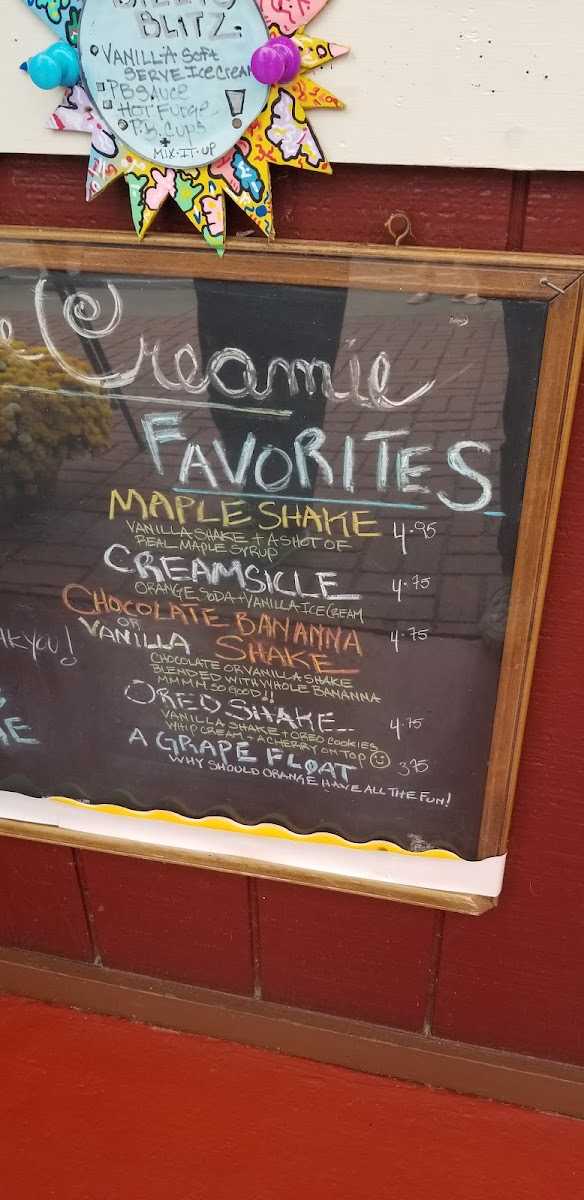 BLITZ
• VANILLA Soft
SERVE Ice Cream
PB Sauce
Hot Fudge
P.B. Cups
+
MIX-IT-UP
!
Creamie
FAVORITES
MAPLE SHAKE 4.95
VANILLA SHAKE + A SHOT OF
REAL MAPLE SYRUP
CREAMSICLE 4.75
ORANGE SODA + VANILLA ICE CREAM
CHOCOLATE BANANNA
OR
VANILLA SHAKE 4.75
CHOCOLATE OR VANILLA SHAKE
BLENDED WITH WHOLE BANANNA
MMMM SO GOOD!!
OREO SHAKE-- 4.75
VANILLA SHAKE + OREO COOKIES
WHIP CREAM + A CHERRY ON TOP ☺
A GRAPE FLOAT 3.75
WHY SHOULD ORANGE HAVE ALL THE FUN!
YOU!